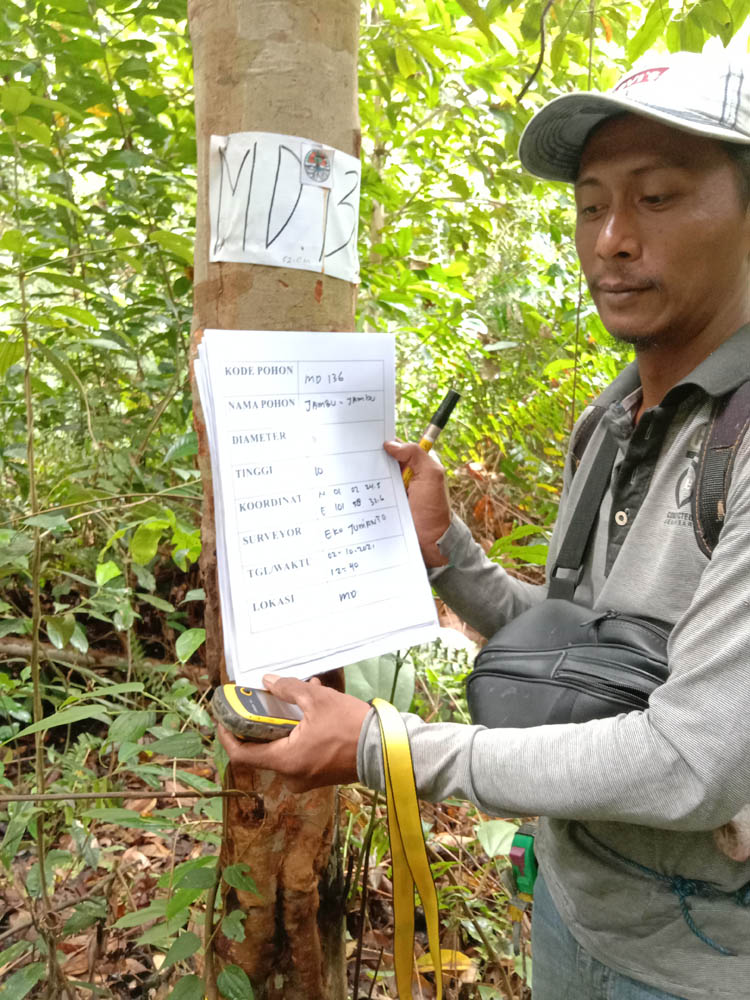 MD.13
52 cm
KODE POHON MD 136
NAMA POHON JAMBU - JAMBU
DIAMETER
TINGGI 10
KOORDINAT N 01 02 24.5
E 101 58 32.6
SURVEYOR EKO JUMANTO
TGL/WAKTU 02-10-2021
12:40
LOKASI MD